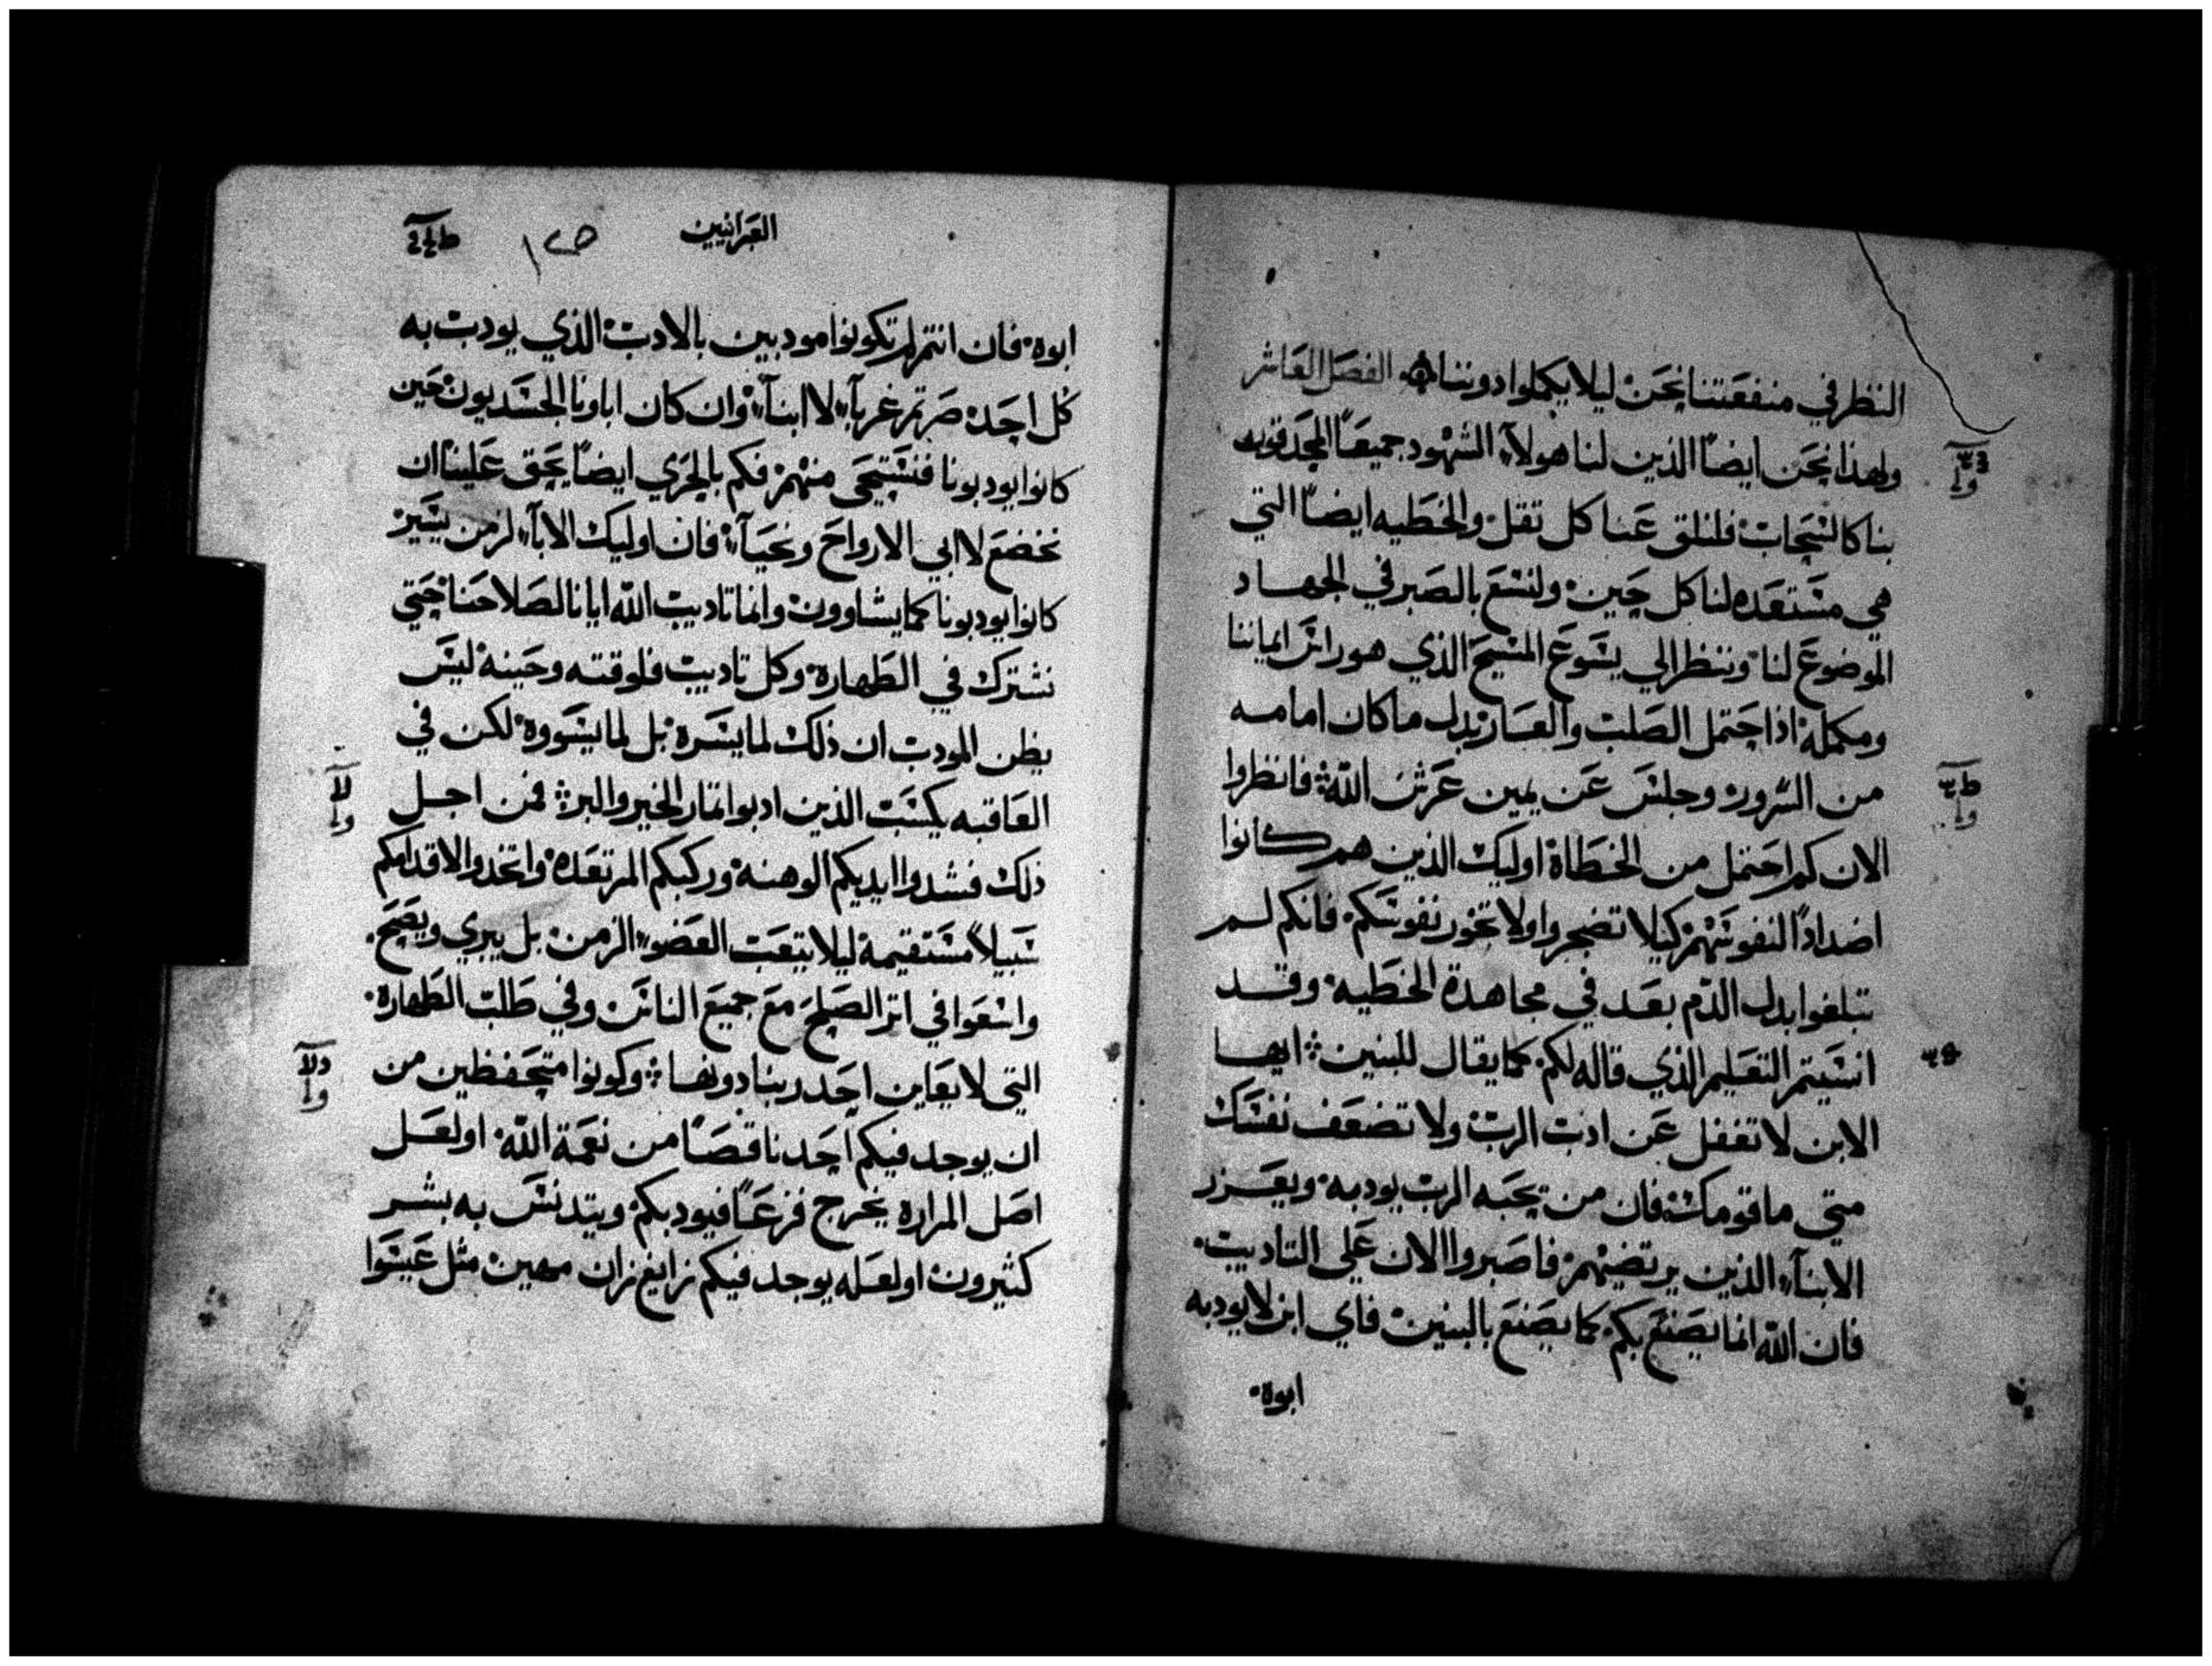 النظر في منفعتنا نحن ليلا يكملوا دوننا الفصل العاشر
ولهذا نحن ايضًا الذين لنا هولآء الشهود جميعًا المحدقوبه
بنا كالسحابات فلنلق عنا كل ثقل والخطيه ايضًا التي
هي مستعده لنا كل حين ولنسع بالصبر في الجهاد
الموضوع لنا وننظر الي يسوع المسيح الذي هو راس ايماننا
ومكمله اذ احتمل الصلب والعار بدل ما كان امامه
من السرور وجلس عن يمين عرش الله فانظروا
الان كم احتمل من الخطاة اوليك الذين هم كانوا
اضدادًا لنفوسهم كيلا تضجروا ولا تخور نفوسكم فانكم لم
تبلغوا بدل الدم بعد في مجاهدة الخطيه وقد
انسيتم التعليم الذي قاله لكم كما يقال للبنين ايها
الابن لا تغفل عن ادب الرب ولا تضعف نفسك
متي ما قومك فان من يحبه الرب يودبه ويعزر
الابنآء الذين يرتضيهم فاصبروا الان علي التاديب
فان الله انما يصنع بكم كما يصنع بالبنين فاي ابن لا يودبه
ابوه
العبرانيين
ابوه فان انتم لم تكونوا مودبين بالادب الذي يودب به
كل احد صرتم غربآء لا ابنآء وان كان اباونا الجسديون حين
كانوا يودبونا فنستحي منهم فكم بالحري ايضًا يحق علينا ان
نخضع لابي الارواح ونحيآ فان اوليك الابآء لزمن يسير
كانوا يودبونا كما يشاوون وانما تاديب الله ايانا لصلاحنا حتي
نشترك في الطهارة وكل تاديب فلوقته وحينه ليس
يظن المودب ان ذلك لما يسره بل لما يسووه لكن في
العاقبه يكسب الذين ادبوا ثمار الخير والبر فمن اجل
ذلك فشدوا ايديكم الوهنه وركبكم المرتعده واتخدوا لاقدامكم
سبيلاً مستقيمة ليلا يتعب العضو الزمن بل يبري ويصح
واسعوا في اثر الصلح مع جميع الناس وفي طلب الطهارة
التي لا يعاين احد ربنا دونها وكونوا متحفظين من
ان يوجد فيكم احد ناقصًا من نعمة الله او لعل
اصل المراره يخرج فزعًا فيودبكم ويتدنس به بشر
كثيرون او لعله يوجد فيكم زايغ زان مهين مثل عيسوا